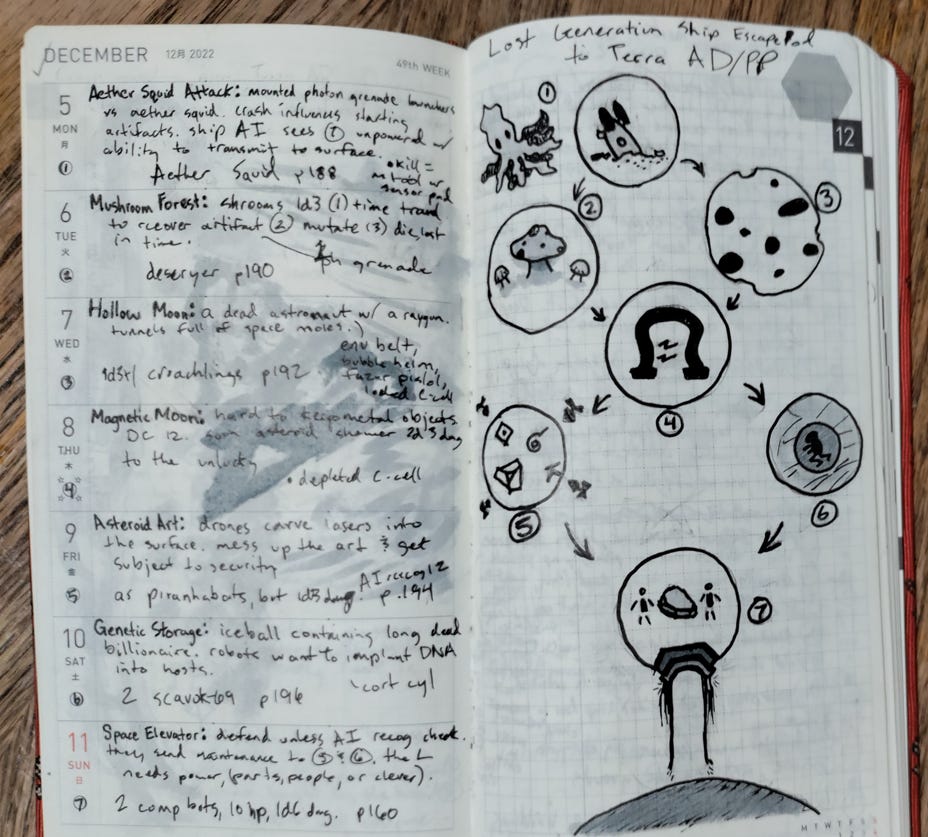 DECEMBER 12月 2022
49th WEEK
5
MON
月
①
Aether Squid Attack: mounted photon grenade launchers
vs aether squid. crash influences starting
artifacts. ship AI sees ⑦ unpowered w/
ability to transmit to surface.
• kill =
Aether Squid p188
sensor pod
6
TUE
火
②
Mushroom Forest: shrooms 1d3 (1) time travel
to recover artifact (2) mutate (3) die, lost
in time.
ph grenade
p190
7
WED
水
③
Hollow Moon: a dead astronaut w/ a raygun.
tunnels full of space moles.)
env belt,
bubble helm,
fazer pistol,
loaded C-cell
p192
8
THU
木
④
Magnetic Moon: hard to keep metal objects
DC 12. asteroid shower 2d3 dmg
to the unlucky
• depleted C-cell
9
FRI
金
⑤
Asteroid Art: drones carve lasers into
the surface. mess up the art & get
subject to security
AI recog 12
as piranhabots, but 1d3 dmg p.194
10
SAT
土
⑥
Genetic Storage: iceball containing long dead
billionaire. robots want to implant DNA
into hosts.
cort cyl
2 p196
11
SUN
日
⑦
Space Elevator: defend unless AI recog check.
they send maintenance to ⑤ & ⑥. the L
needs power, (parts, people, or clever).
2 comp bots, 10 hp, 1d6 dmg. p160
Lost Generation Ship Escape Pod
to Terra AD/PP
12
①
②
③
④
⑤
⑥
⑦
M T W T F S S